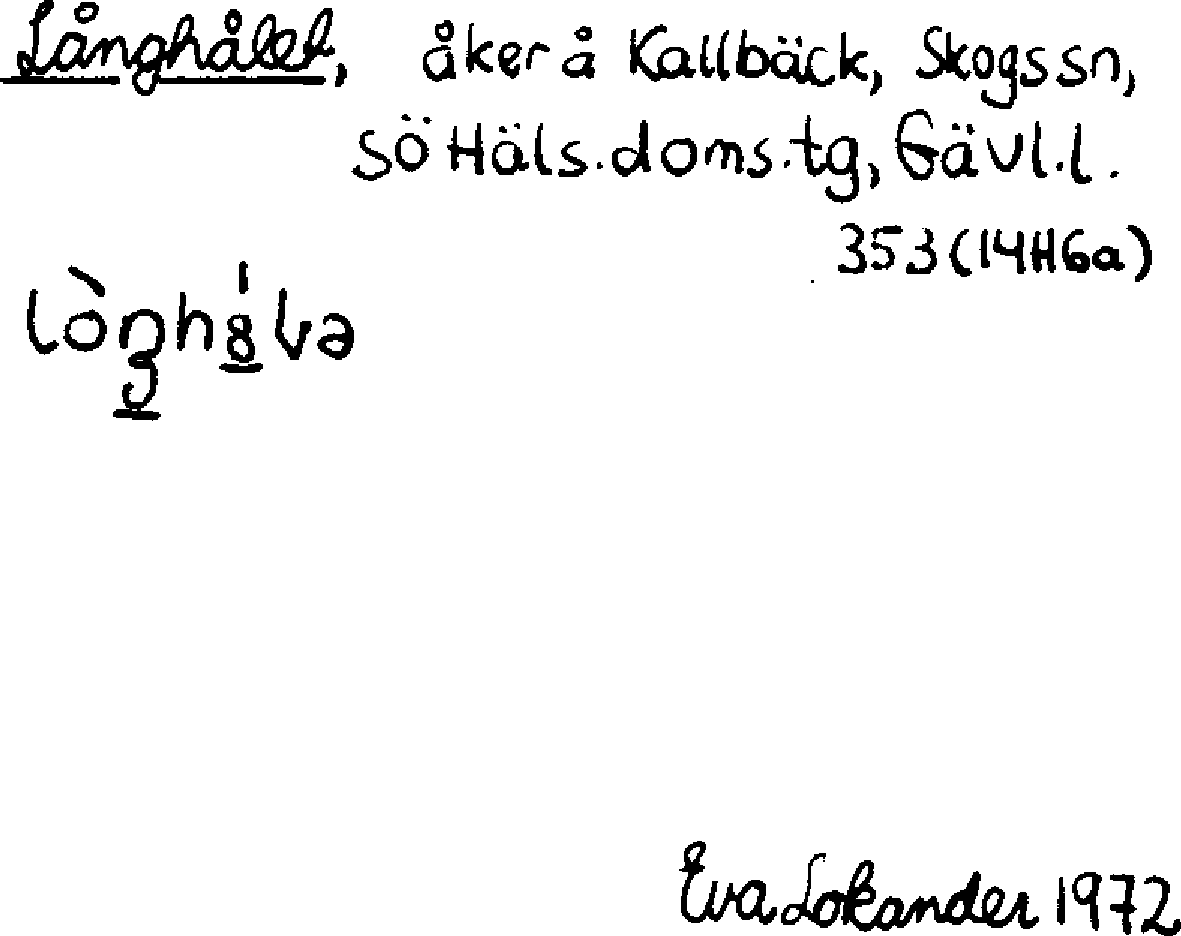 Långhålet, åker å Kallbäck, Skogs sn,
SÖ Häls. doms. tg, Gävl. l.
353 (14H6a)
Eva Lokander 1972